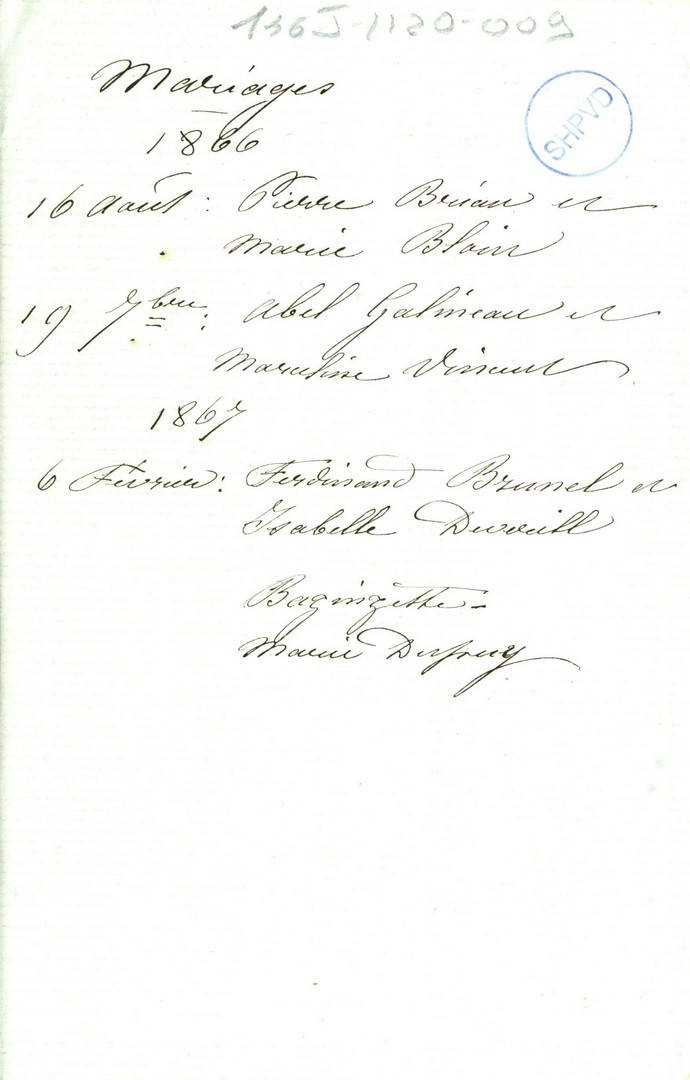 136J-1120-009
SHPVD
Mariages
1866
16 août : Pierre Briau et
Marie Blain
19 7bre : Abel Galineau et
Marceline Vincent
1867
6 Février : Ferdinand Brunel et
Isabelle
Marie Dupuy